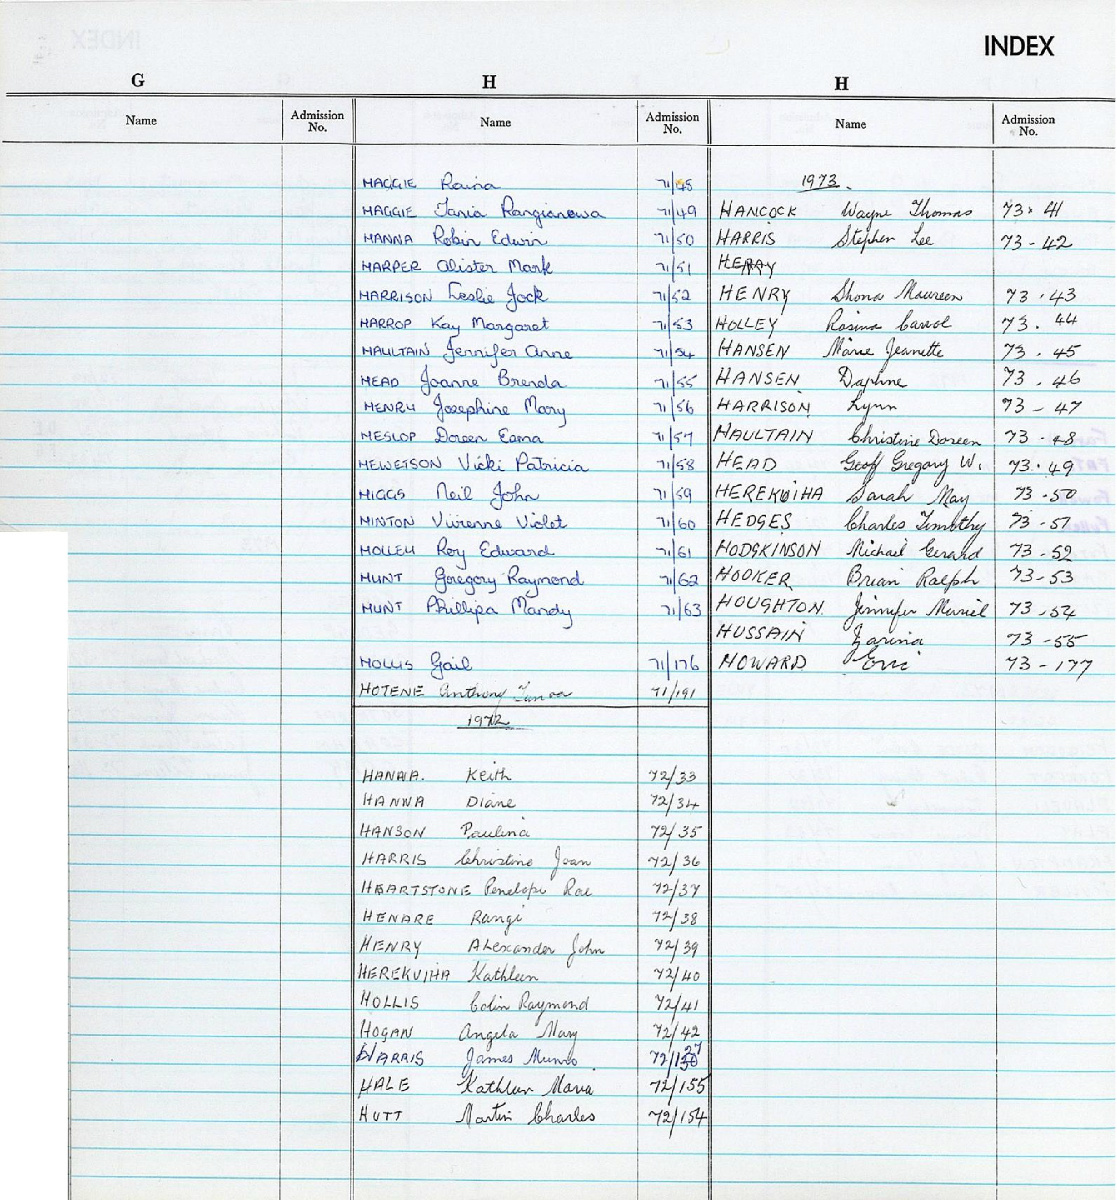 INDEX
G H H
Name Admission No. Name Admission No. Name Admission No.
HAGGIE Raina 71/48
HAGGIE Tania Rangianewa 71/49
HANNA Robin Edwin 71/50
HARPER Alister Mark 71/51
HARRISON Leslie Jock 71/52
HARROP Kay Margaret 71/53
HAULTAIN Jennifer Anne 71/54
HEAD Joanne Brenda 71/55
HENRY Josephine Mary 71/56
HESLOP Doreen 71/57
HEWETSON Vicki Patricia 71/58
HIGGS Neil John 71/59
HINTON Vivienne Violet 71/60
HOLLEY Roy Edward 71/61
HUNT Gregory Raymond 71/62
HUNT Phillipa Mandy 71/63
HOLLIS Gail 71/176
HOTENE Anthony 71/191
1972
HANNA. Keith 72/33
HANNA Diane 72/34
HANSON Paulina 72/35
HARRIS Christine Joan 72/36
HEARTSTONE Penelope Rae 72/37
HENARE Rangi 72/38
HENRY Alexander John 72/39
HEREKUIHA Kathleen 72/40
HOLLIS Colin Raymond 72/41
HOGAN Angela Mary 72/42
HARRIS James Munro
HALE Kathleen Maria 72/155
HUTT Martin Charles 72/154
1973.
HANCOCK Wayne Thomas 73.41
HARRIS Stephen Lee 73-42
HENRY Shona Maureen 73.43
HOLLEY Rosina Carrol 73.44
HANSEN Marie Jeanette 73.45
HANSEN Daphne 73.46
HARRISON Lynn 73-47
HAULTAIN Christine Doreen 73-48
HEAD Geoff Gregory W. 73.49
HEREKUIHA Sarah May 73-50
HEDGES Charles Timothy 73-51
HODGKINSON Michael Gerard 73-52
HOOKER Brian Ralph 73-53
HOUGHTON. Jennifer Muriel 73.54
HUSSAIN Zarina 73-55
HOWARD Eric 73-177